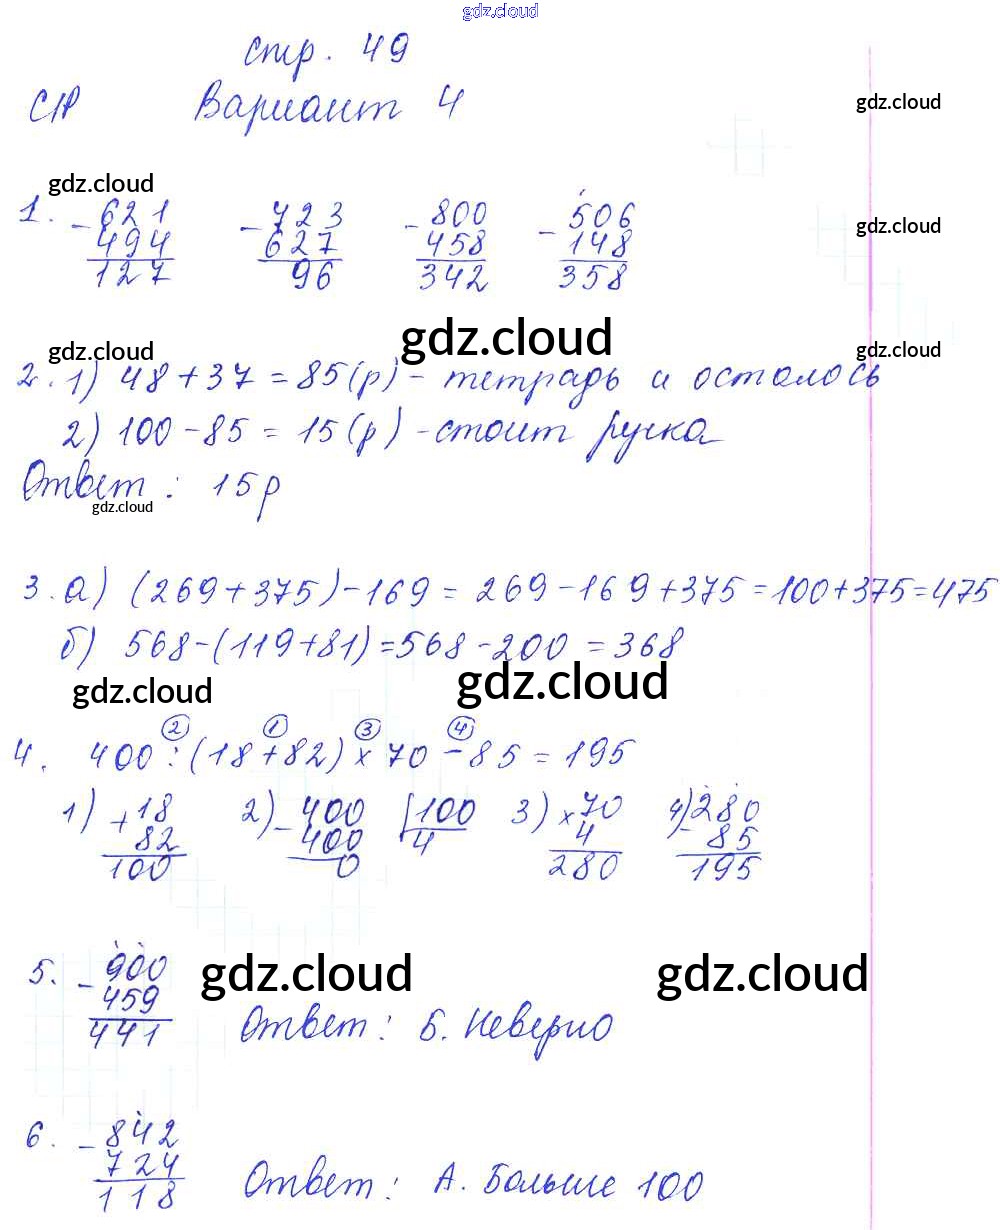 gdz.cloud
стр. 49
С/Р Вариант 4
gdz.cloud
gdz.cloud
1. - 621 - 723 - 800 - 506
gdz.cloud
494 627 458 148
127 96 342 358
gdz.cloud
gdz.cloud
gdz.cloud
2. 1) 48 + 37 = 85 (р) - тетрадь и осталось
2) 100 - 85 = 15 (р) - стоит ручка
Ответ : 15 р
gdz.cloud
3. а) (269 + 375) - 169 = 269 - 169 + 375 = 100 + 375 = 475
б) 568 - (119 + 81) = 568 - 200 = 368
gdz.cloud
gdz.cloud
2 1 3 4
4. 400 : (18 + 82) × 70 - 85 = 195
1) + 18 2) - 400 100 3) × 70 4) - 280
82 400 4 4 85
100 0 280 195
5. - 900
gdz.cloud
gdz.cloud
459
441 Ответ : Б. Неверно
6. - 842
724
118 Ответ : А. Больше 100